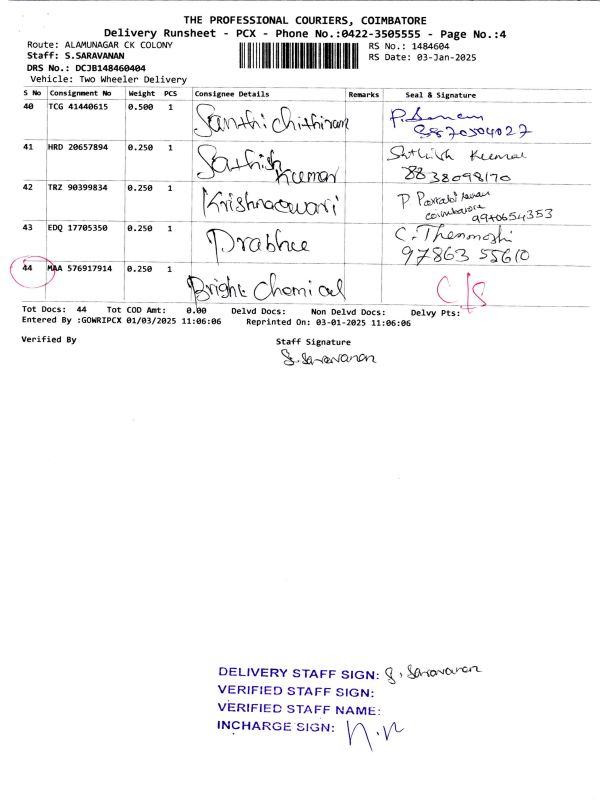 THE PROFESSIONAL COURIERS, COIMBATORE
Delivery Runsheet - PCX - Phone No.:0422-3505555 - Page No.:4
Route: ALAMUNAGAR CK COLONY
RS No.: 1484604
Staff: S.SARAVANAN
RS Date: 03-Jan-2025
DRS No.: DCJB148460404
Vehicle: Two Wheeler Delivery
S No Consignment No Weight PCS Consignee Details Remarks Seal & Signature
40 TCG 41440615 0.500 1 Santhi chithiram
41 HRD 20657894 0.250 1 Sathish Kumar Sathish Kumar
8838098170
42 TRZ 90399834 0.250 1 Krishnaowari P
coimbatore
9940654353
43 EDQ 17705350 0.250 1 Prabhu C. Thenmozhi
97863 55610
44 MAA 576917914 0.250 1 Bright Chemical C/S
Tot Docs: 44 Tot COD Amt: 0.00 Delvd Docs: Non Delvd Docs: Delvy Pts:
Entered By :GOWRIPCX 01/03/2025 11:06:06 Reprinted On: 03-01-2025 11:06:06
Verified By Staff Signature
S. Saravanan
DELIVERY STAFF SIGN: S. Saravanan
VERIFIED STAFF SIGN:
VERIFIED STAFF NAME:
INCHARGE SIGN: N.N